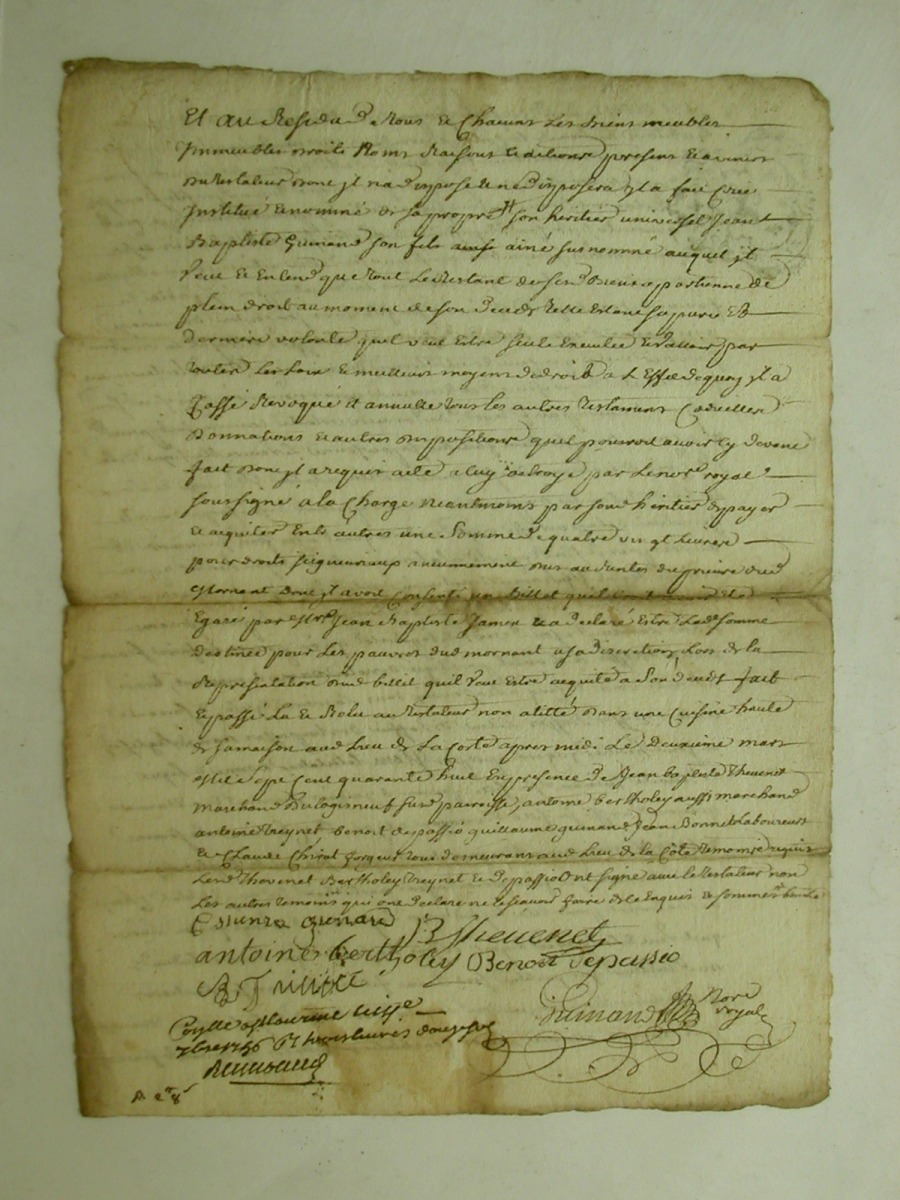 Et au Residu de tous et Chacuns Les Biens meubles
Immeubles droits Noms Raisons et actions presents et avenir
du testateur dont jl n'a disposé et ne disposera jl a fait Crée
Institué et nommé de sa propre son héritier universel Jean
Baptiste Guinand son fils ainé susnommé auquel jl
veut et Entend que tout Le Restant de ses Biens apartienne de
plein droit au moment de son Decedz telle Estant sa pure et
derniere volonté qu'il veut Estre seule Executée et valloir par
toutes Les Loix et meilleurs moyens de droit a L'Effet dequoy jl a
Cassé Revoqué et annullé tous les autres testaments Codicilles
Donnations et autres dispositions quil pourroit avoir Cy devant
fait dont jl a requis acte a luy octroyé par Le not.re royal
soussigné a la Charge neantmoins par sond heritier de payer
et aquiter Entr'autres une Somme de quatre vingt Livres
pour droits seigneuriaux anciennement dus au prieuré dud
Mornant dont jl avoit Consenti un Billet quil
Egaré par Mr.e Jean Baptiste Jamen et a declaré Estre Lad. somme
destinée pour Les pauvres dud mornant a sa discretion Lors de la
Representation dud billet quil veut Estre aquité a son deceds fait
et passé Lu et Relu au testateur non alitté dans une Cuisine haute
de sa maison aud Lieu de La Coste apres midi Le Deuxieme mars
Mil sept Cent quarante huit En presence de Jean baptiste Thevenet
marchand du Logis neuf sud parroisse, antoine bertholey aussi marchand
antoine treynet, benoit depassio guillaume guinand Jean Bonnet Laboureurs
et Claude Chirat forgeur tous demeurans aud Lieu de la Côte temoins requis
Lesd Thevenet Bertholey treynet et depassio Ont signé avec le testateur non
Les autres temoins qui ont declaré ne scavoir faire de ce Enquis et sommés
Estienne guinand J B Thevenet
antoine bertholey Benoit depassio
A Treynet
Guinand Nore royal
7bre 1756